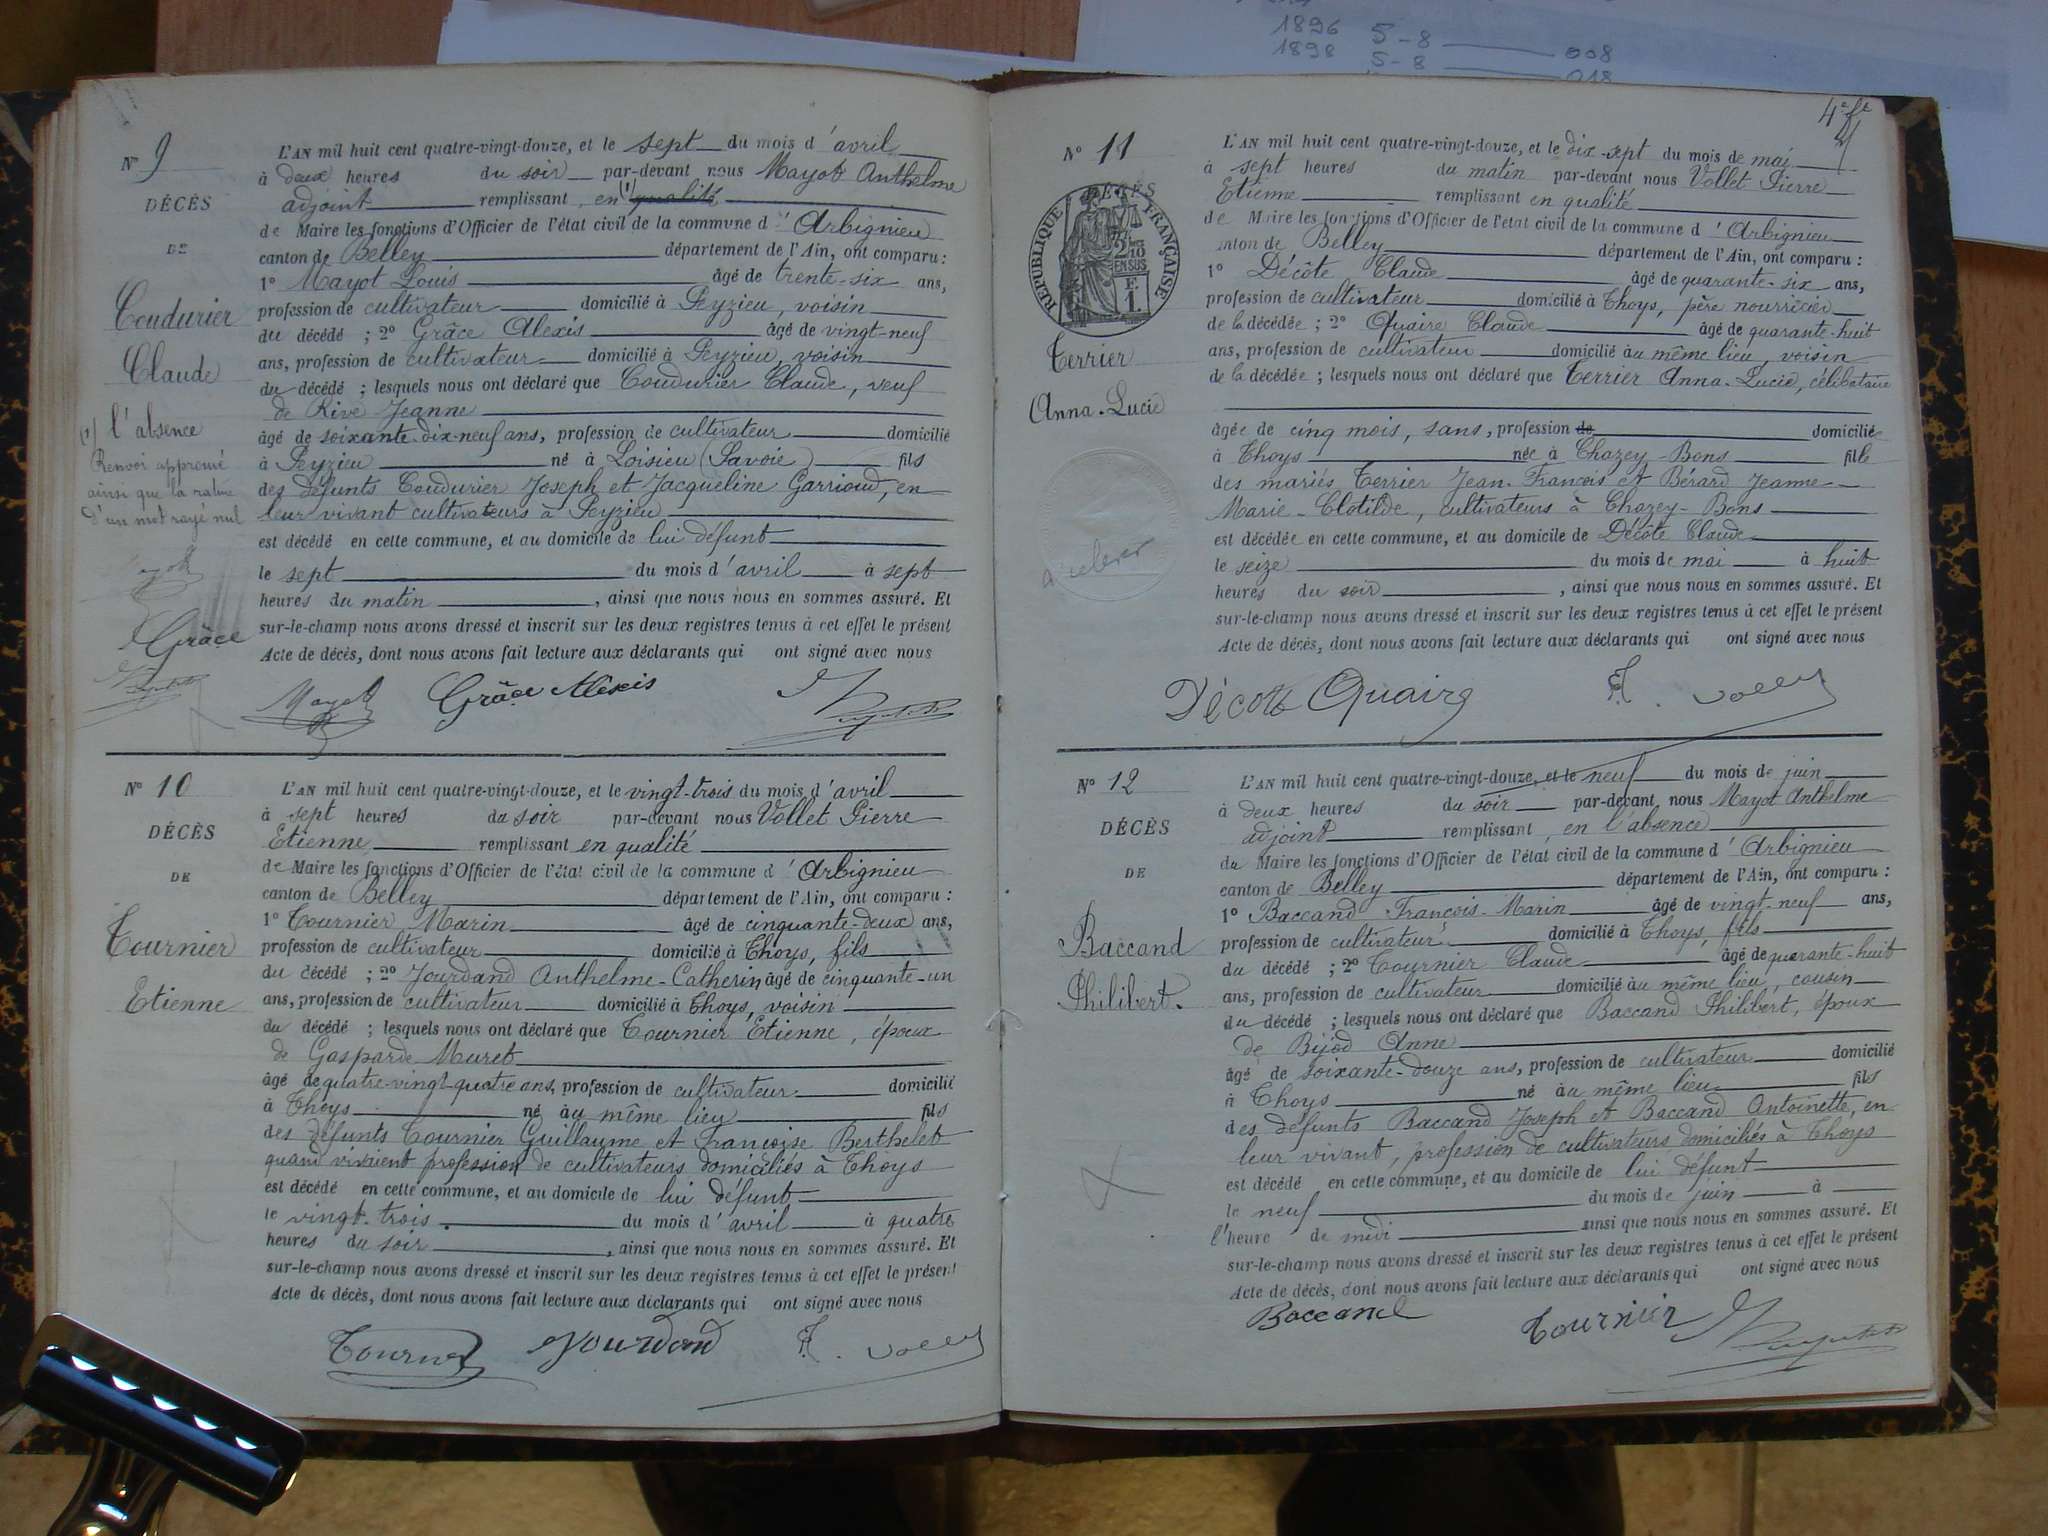 1896 5-8 008
1898 5-8 018
N° 9
DÉCÈS
DE
Coudurier
Claude
(1) l'absence
Renvoi approuvé
ainsi que la rature
d'un mot rayé nul
Grâce
L'AN mil huit cent quatre-vingt-douze, et le sept du mois d'avril
à deux heures du soir par-devant nous Mayot Anthelme
adjoint remplissant en (1) qualité
de Maire les fonctions d'Officier de l'état civil de la commune d'Arbignieu
canton de Belley département de l'Ain, ont comparu :
1° Mayot Louis âgé de trente-six ans,
profession de cultivateur domicilié à Peyzieu, voisin
du décédé ; 2° Grâce Alexis âgé de vingt-neuf
ans, profession de cultivateur domicilié à Peyzieu, voisin
du décédé ; lesquels nous ont déclaré que Coudurier Claude, veuf
de Rive Jeanne
âgé de soixante-dix-neuf ans, profession de cultivateur domicilié
à Peyzieu né à Loisieu (Savoie) fils
des défunts Coudurier Joseph et Jacqueline Garrioud, en
leur vivant cultivateurs à Peyzieu
est décédé en cette commune, et au domicile de lui défunt
le sept du mois d'avril à sept
heures du matin, ainsi que nous nous en sommes assuré. Et
sur-le-champ nous avons dressé et inscrit sur les deux registres tenus à cet effet le présent
Acte de décès, dont nous avons fait lecture aux déclarants qui ont signé avec nous
Mayot Grâce Alexis
N° 10
DÉCÈS
DE
Tournier
Etienne
L'AN mil huit cent quatre-vingt-douze, et le vingt-trois du mois d'avril
à sept heures du soir par-devant nous Vollet Pierre
Etienne remplissant en qualité
de Maire les fonctions d'Officier de l'état civil de la commune d'Arbignieu
canton de Belley département de l'Ain, ont comparu :
1° Tournier Marin âgé de cinquante-deux ans,
profession de cultivateur domicilié à Thoys, fils
du décédé ; 2° Jourdand Anthelme-Catherin âgé de cinquante-un
ans, profession de cultivateur domicilié à Thoys, voisin
du décédé ; lesquels nous ont déclaré que Tournier Etienne, époux
de Gasparde Muret
âgé de quatre-vingt-quatre ans, profession de cultivateur domicilié
à Thoys né au même lieu fils
des défunts Tournier Guillaume et Françoise Berthelet
quand vivaient profession de cultivateurs domiciliés à Thoys
est décédé en cette commune, et au domicile de lui défunt
le vingt-trois du mois d'avril à quatre
heures du soir, ainsi que nous nous en sommes assuré. Et
sur-le-champ nous avons dressé et inscrit sur les deux registres tenus à cet effet le présent
Acte de décès, dont nous avons fait lecture aux déclarants qui ont signé avec nous
Jourdand
4e ft
N° 11
RÉPUBLIQUE FRANÇAISE
2/10 EN SUS
F. 1.
Terrier
Anna-Lucie
L'AN mil huit cent quatre-vingt-douze, et le dix-sept du mois de mai
à sept heures du matin par-devant nous Vollet Pierre
Etienne remplissant en qualité
de Maire les fonctions d'Officier de l'état civil de la commune d'Arbignieu
canton de Belley département de l'Ain, ont comparu :
1° Décôte Claude âgé de quarante-six ans,
profession de cultivateur domicilié à Thoys, père nourricier
de la décédée ; 2° Quaire Claude âgé de quarante-huit
ans, profession de cultivateur domicilié au même lieu, voisin
de la décédée ; lesquels nous ont déclaré que Terrier Anna-Lucie, célibataire
âgée de cinq mois, sans, profession de domicilié
à Thoys née à Chazey-Bons fille
des mariés Terrier Jean-François et Bérard Jeanne
Marie-Clotilde, cultivateurs à Chazey-Bons
est décédée en cette commune, et au domicile de Décôte Claude
le seize du mois de mai à huit
heures du soir, ainsi que nous nous en sommes assuré. Et
sur-le-champ nous avons dressé et inscrit sur les deux registres tenus à cet effet le présent
Acte de décès, dont nous avons fait lecture aux déclarants qui ont signé avec nous
Décote Quaire
N° 12
DÉCÈS
DE
Baccand
Philibert.
L'AN mil huit cent quatre-vingt-douze, et le neuf du mois de juin
à deux heures du soir par-devant nous Mayot Anthelme
adjoint remplissant, en l'absence
du Maire les fonctions d'Officier de l'état civil de la commune d'Arbignieu
canton de Belley département de l'Ain, ont comparu :
1° Baccand François-Marin âgé de vingt-neuf ans,
profession de cultivateur domicilié à Thoys, fils
du décédé ; 2° Tournier Claude âgé de quarante-huit
ans, profession de cultivateur domicilié au même lieu, cousin
du décédé ; lesquels nous ont déclaré que Baccand Philibert, époux
de Bijod Anne
âgé de soixante-douze ans, profession de cultivateur domicilié
à Thoys né au même lieu fils
des défunts Baccand Joseph et Baccand Antoinette, en
leur vivant, profession de cultivateurs domiciliés à Thoys
est décédé en cette commune, et au domicile de lui défunt
le neuf du mois de juin à
l'heure de midi ainsi que nous nous en sommes assuré. Et
sur-le-champ nous avons dressé et inscrit sur les deux registres tenus à cet effet le présent
Acte de décès, dont nous avons fait lecture aux déclarants qui ont signé avec nous
Baccand Tournier